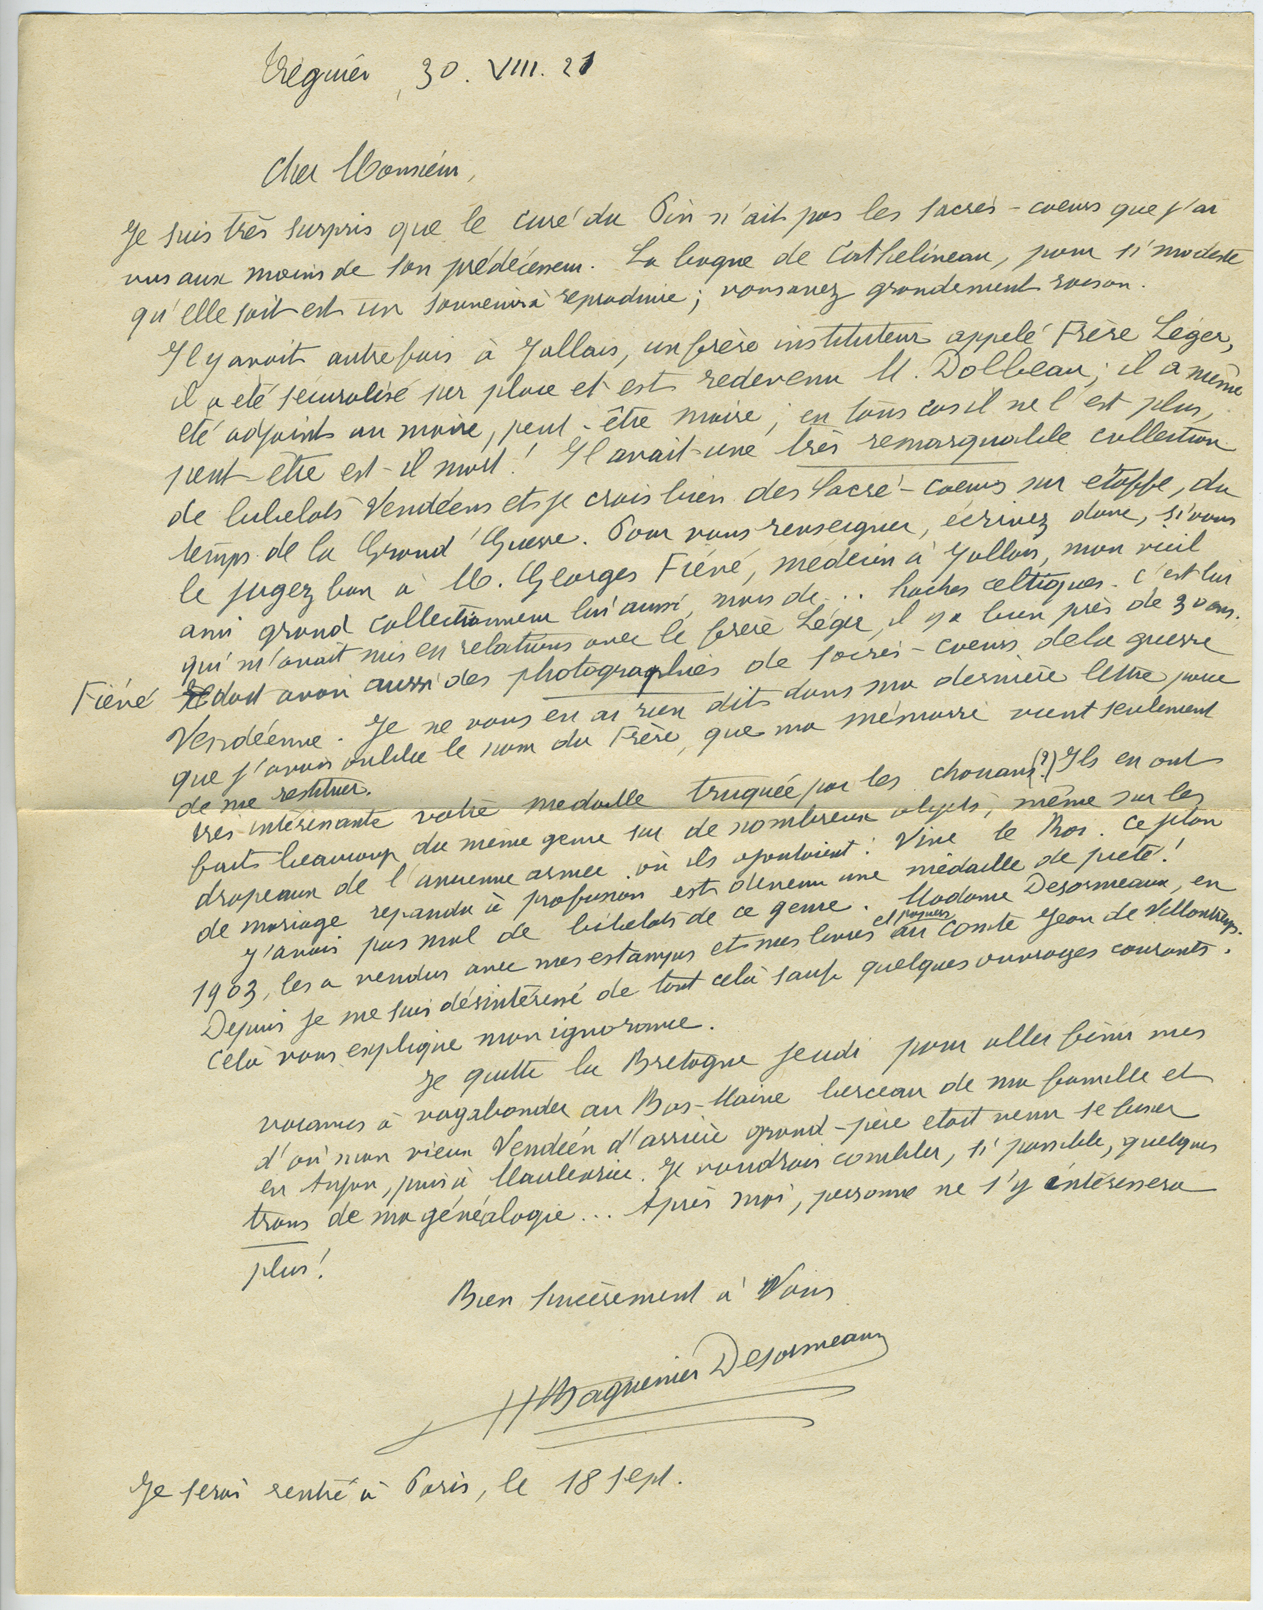 Tréguier, 30. VIII. 21
Cher Monsieur,
Je suis très surpris que le curé du Pin n'ait pas les sacrés-coeurs que j'ai
vus aux mains de son prédécesseur. La bague de Cathelineau, pour si modeste
qu'elle soit est un souvenir à reproduire; vous avez grandement raison.
Il y avait autrefois à Jallais, un frère instituteur appelé Frère Léger,
il a été sécularisé sur place et est redevenu M. Dolbeau; il a même
été adjoint au maire, peut-être maire; en tous cas il ne l'est plus,
peut-être est-il mort! Il avait une très remarquable collection
de bibelots Vendéens et je crois bien des Sacré-coeurs sur étoffe, du
temps de la Grand' Guerre. Pour vous renseigner, écrivez donc, si vous
le jugez bon à M. Georges Fiévé, médecin à Jallais, mon vieil
ami grand collectionneur lui aussi, mais de... haches celtiques. C'est lui
qui m'avait mis en relations avec le frère Léger, il y a bien près de 30 ans.
Fiévé doit avoir aussi des photographies de sacrés-coeurs de la guerre
Vendéenne. Je ne vous en ai rien dit dans ma dernière lettre parce
que j'avais oublié le nom du Frère, que ma mémoire vient seulement
de me restituer.
Très intéressante votre médaille truquée par les chouans (?) Ils en ont
fait beaucoup du même genre sur de nombreux objets, même sur les
drapeaux de l'ancienne armée où ils ajoutaient: Vive le Roi. Ce jeton
de mariage répandu à profusion est devenu une médaille de piété!
J'avais pas mal de bibelots de ce genre. Madame Desormeaux, en
1903, les a vendus avec mes estampes et mes livres et papiers au Comte Jean de Villoutreys.
Depuis je me suis désintéressé de tout celà sauf quelques ouvrages courants.
Celà vous explique mon ignorance.
Je quitte la Bretagne jeudi pour aller finir mes
vacances à vagabonder au Bas-Maine berceau de ma famille et
d'où mon vieux Vendéen d'arrière grand-père était venu se fixer
en Anjou, puis à Maulévrier. Je voudrais combler, si possible, quelques
trous de ma généalogie... Après moi, personne ne s'y intéressera
plus!
Bien sincèrement à Vous
H Baguenier Desormeaux
Je serai rentré à Paris, le 18 sept.